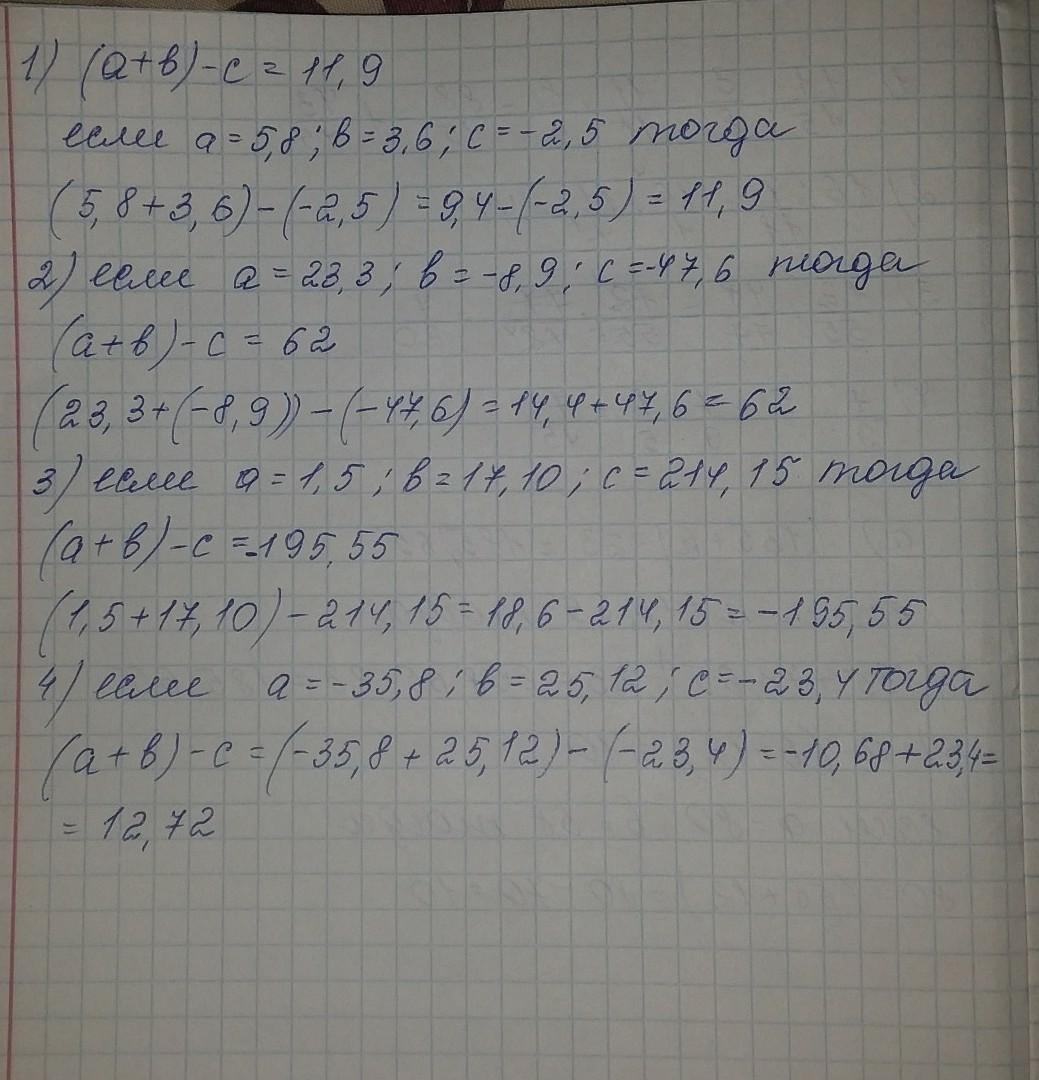 1) (а+в)-с = 11,9
если а = 5,8; в = 3,6; с = -2,5 тогда
(5,8+3,6)-(-2,5) = 9,4-(-2,5) = 11,9
2) если а = 23,3; в = -8,9; с = -47,6 тогда
(а+в)-с = 62
(23,3+(-8,9))-(-47,6) = 14,4+47,6 = 62
3) если а = 1,5; в = 17,10; с = 214,15 тогда
(а+в)-с = -195,55
(1,5+17,10)-214,15 = 18,6-214,15 = -195,55
4) если а = -35,8; в = 25,12; с = -23,4 тогда
(а+в)-с = (-35,8+25,12)-(-23,4) = -10,68+23,4=
= 12,72